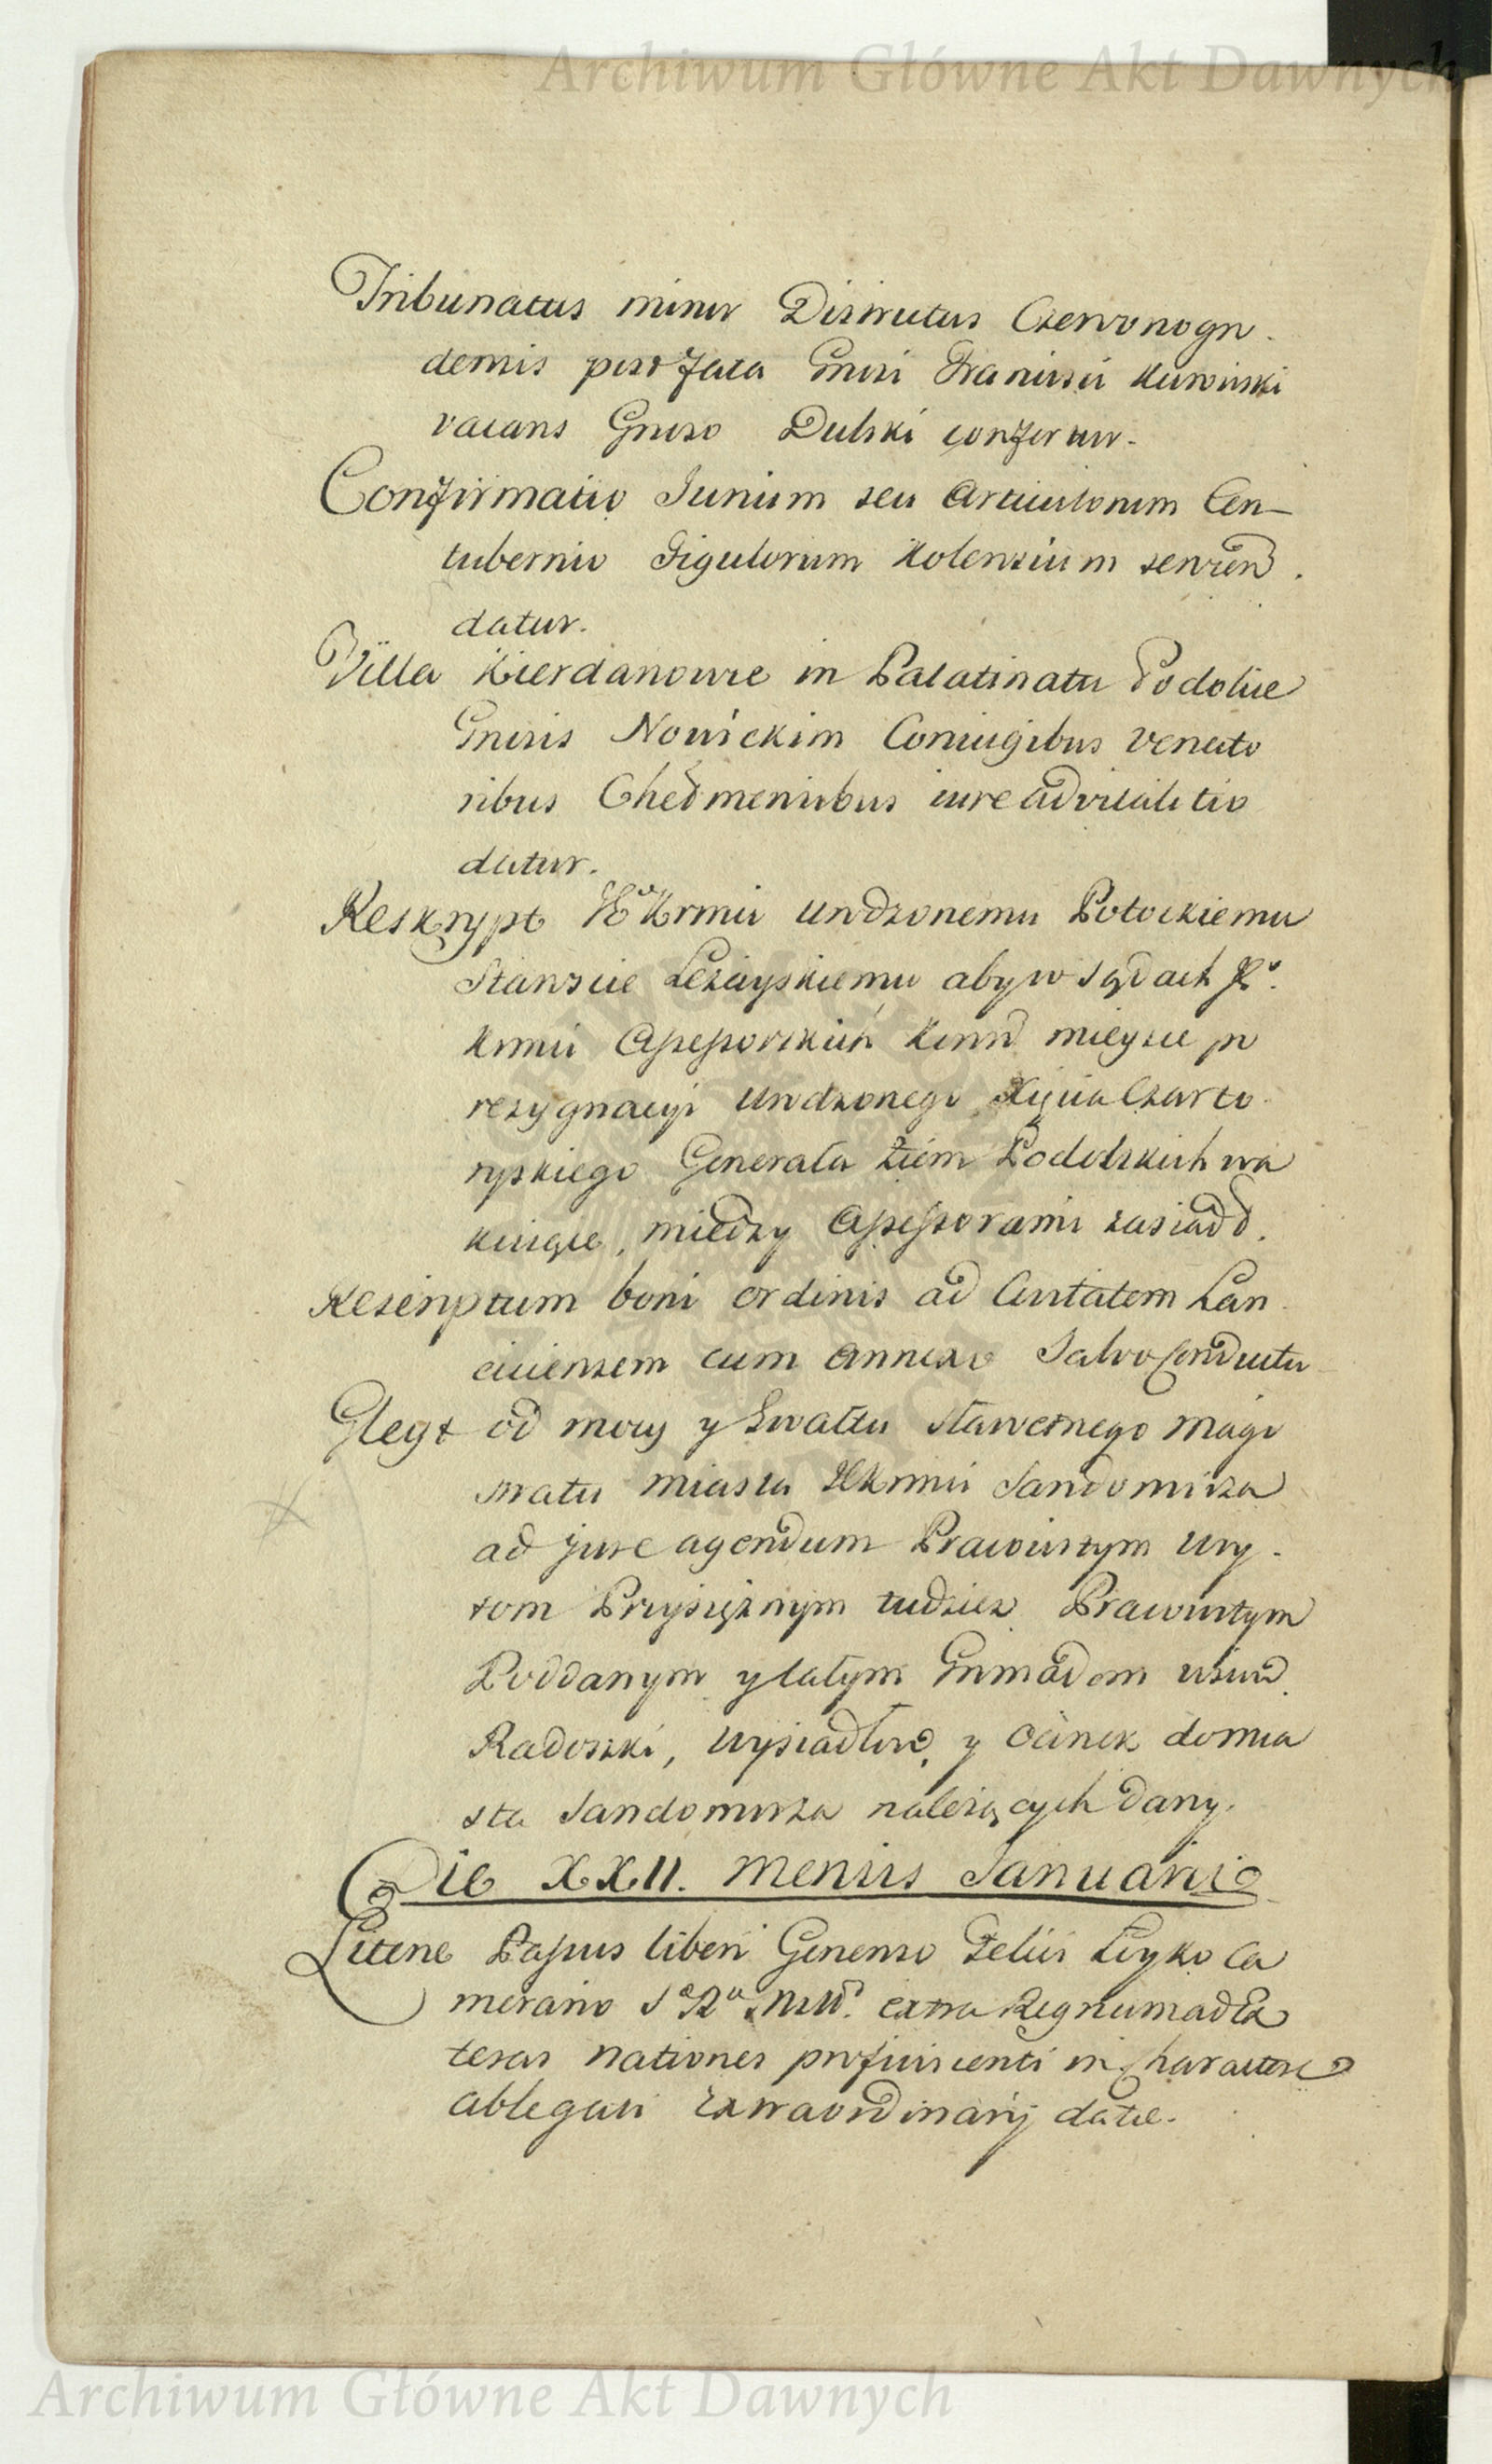 Archiwum Główne Akt Dawnych
Tribunatus minor Districtus Czerwonogro-
densis post fata Gnrsi Francisci Kurowski
vacans Gnroso Dulski confertur.
Confirmatio Iurium seu Articulorum Con-
tubernio Figulorum Kolensium servien
datur.
Villa Kierdanowce in Palatinatu Podoliæ
Gnrsis Nowickim Coniugibus venato
ribus iure advitalitio
datur.
Reskrypt JKMci Urodzonemu Potockiemu
Staroscie Leżayskiemu aby w Sądach JK
KMci Assessorskich Koron mieysce po
rezygnacyi Urodzonego Xięcia Czarto-
ryskiego Generała Ziem Podolskich wa
kuiące, między Assessorami zasiadł.
Rescriptum boni ordinis ad Civitatem Lan-
ciciensem cum annexo Salvo Conductu
Gleyt od mocy y Gwałtu Sławetnego Magi
stratu miasta JKMci Sandomirza
ad jure agendum Pracowitym Wóy-
tom Przysiężnym tudzież Pracowitym
Poddanym y całym Gromadom wsiów
Radoszki, Wysiadłów, y Ocinek do mia
sta Sandomirza należących dany.
Die XXII. Mensis Ianuarii
Literæ Passus liberi Generoso Felici Łoyko Ca
merario S R M extra Regnum ad Ex
teras nationes proficiscenti in Charactere
ablegati Extraordinarij datæ.
Archiwum Główne Akt Dawnych